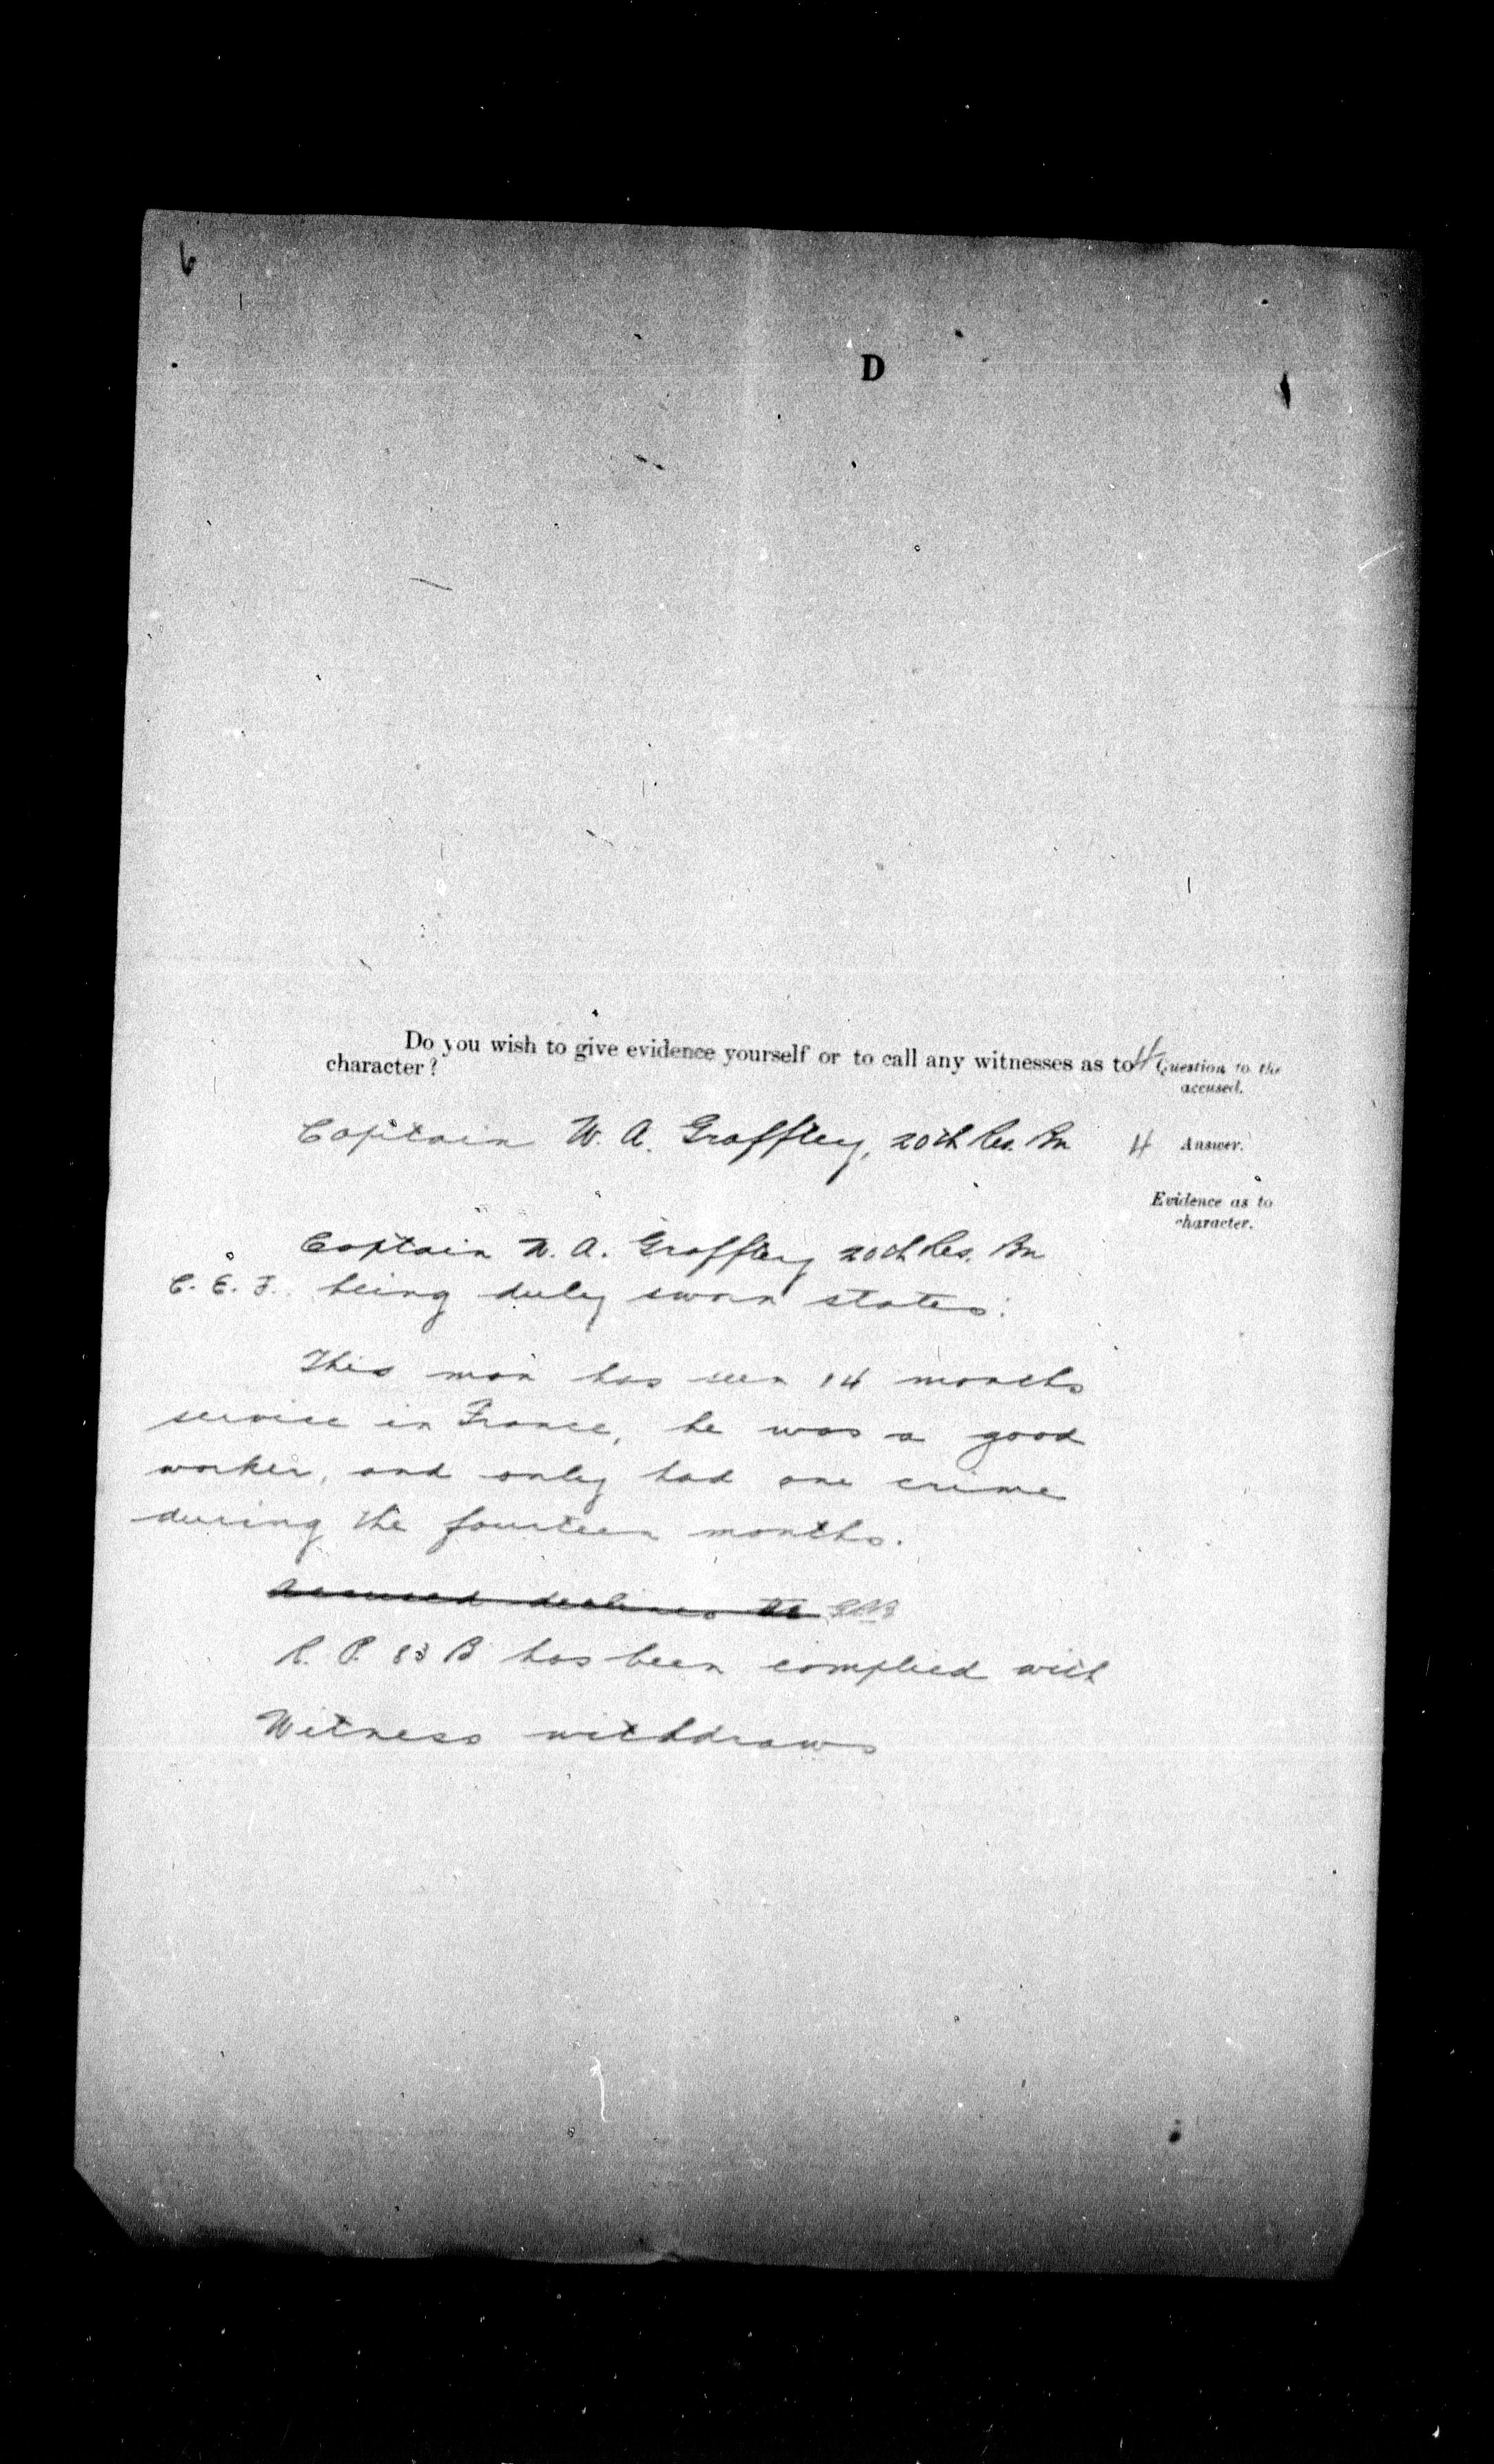 6
D
Do you wish to give evidence yourself or to call any witnesses as to 4 Question to the
character? accused.
Captain W. A. Graffley, 20th Res. Bn 4 Answer.
Evidence as to
character.
Captain W. A. Graffley 20th Res. Bn
C. E. F. being duly sworn states:
This man has seen 14 months
service in France, he was a good
worker, and only had one crime
during the fourteen months.
Accused declines to
R. P. 83 B has been complied with
Witness withdraws